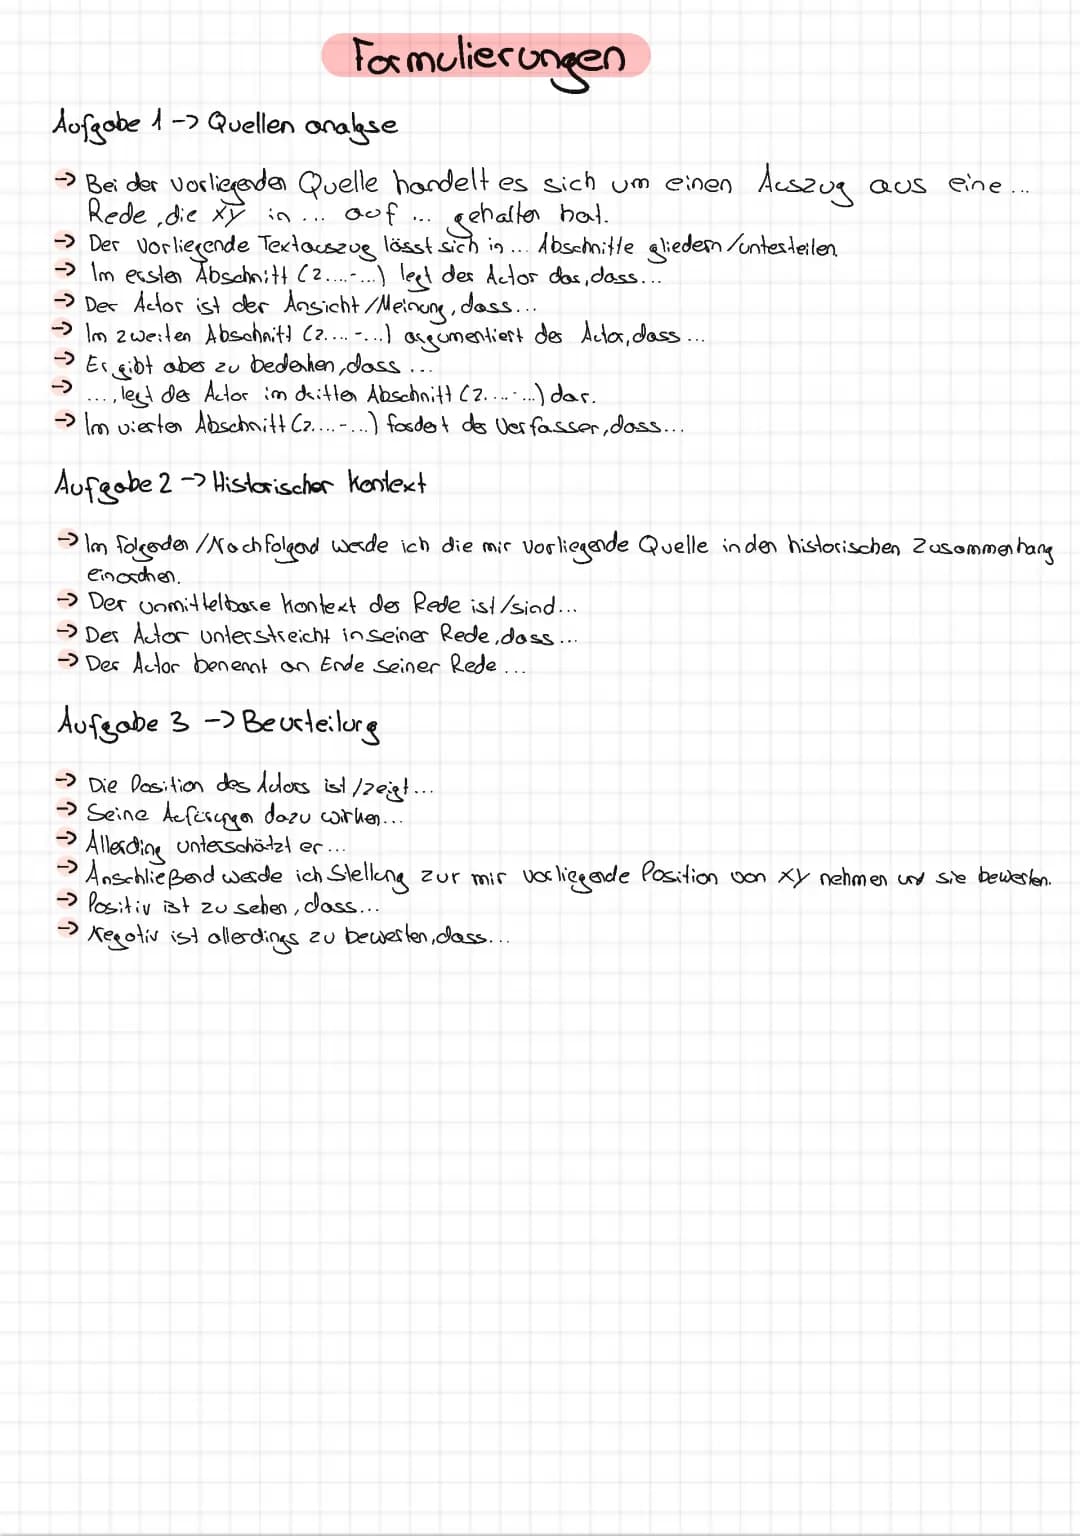 Formulierungen
Aufgabe 1 -> Quellen analyse
-> Bei der vorliegenden Quelle handelt es sich um einen Auszug aus eine...
Rede, die xy in ... auf ... gehalten hat.
-> Der Vorliegende Textauszug lässt sich in ... Abschnitte gliedern/unterteilen
-> Im ersten Abschnitt (Z....-...) legt der Autor das, dass...
-> Der Autor ist der Ansicht/Meinung, dass...
-> Im zweiten Abschnitt (Z....-...) argumentiert der Autor, dass...
-> Er gibt aber zu bedenken, dass ...
-> ..., legt der Autor im dritten Abschnitt (Z....-...) dar.
-> Im vierten Abschnitt (Z....-...) fordert der Verfasser, dass...
Aufgabe 2 -> Historischer Kontext
-> Im folgenden /Nachfolgend werde ich die mir vorliegende Quelle in den historischen Zusammenhang
einordnen.
-> Der unmittelbare Kontext der Rede ist/sind...
-> Der Autor unterstreicht in seiner Rede, dass...
-> Der Autor benennt an Ende seiner Rede ...
Aufgabe 3 -> Beurteilung
-> Die Position des Autors ist/zeigt...
-> Seine Äußerungen dazu wirken...
-> Allerding unterschätzt er...
-> Anschließend werde ich Stellung zur mir vorliegende Position von XY nehmen und sie bewerten.
-> Positiv ist zu sehen, dass...
-> Negativ ist allerdings zu bewerten, dass...